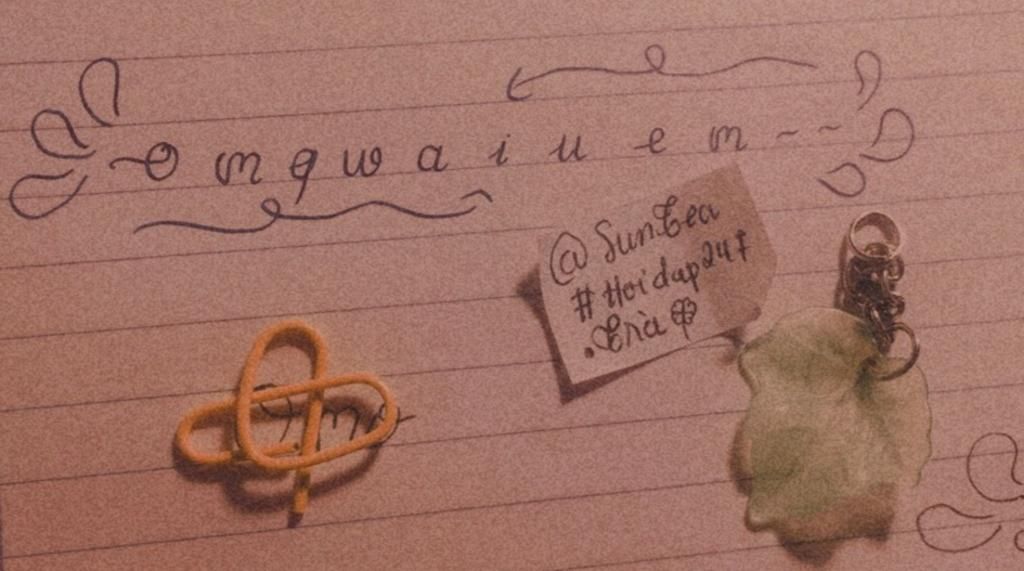 ~ o m q w a i u e m ~ ~
@SunTea
#Hoidap247
.Trà